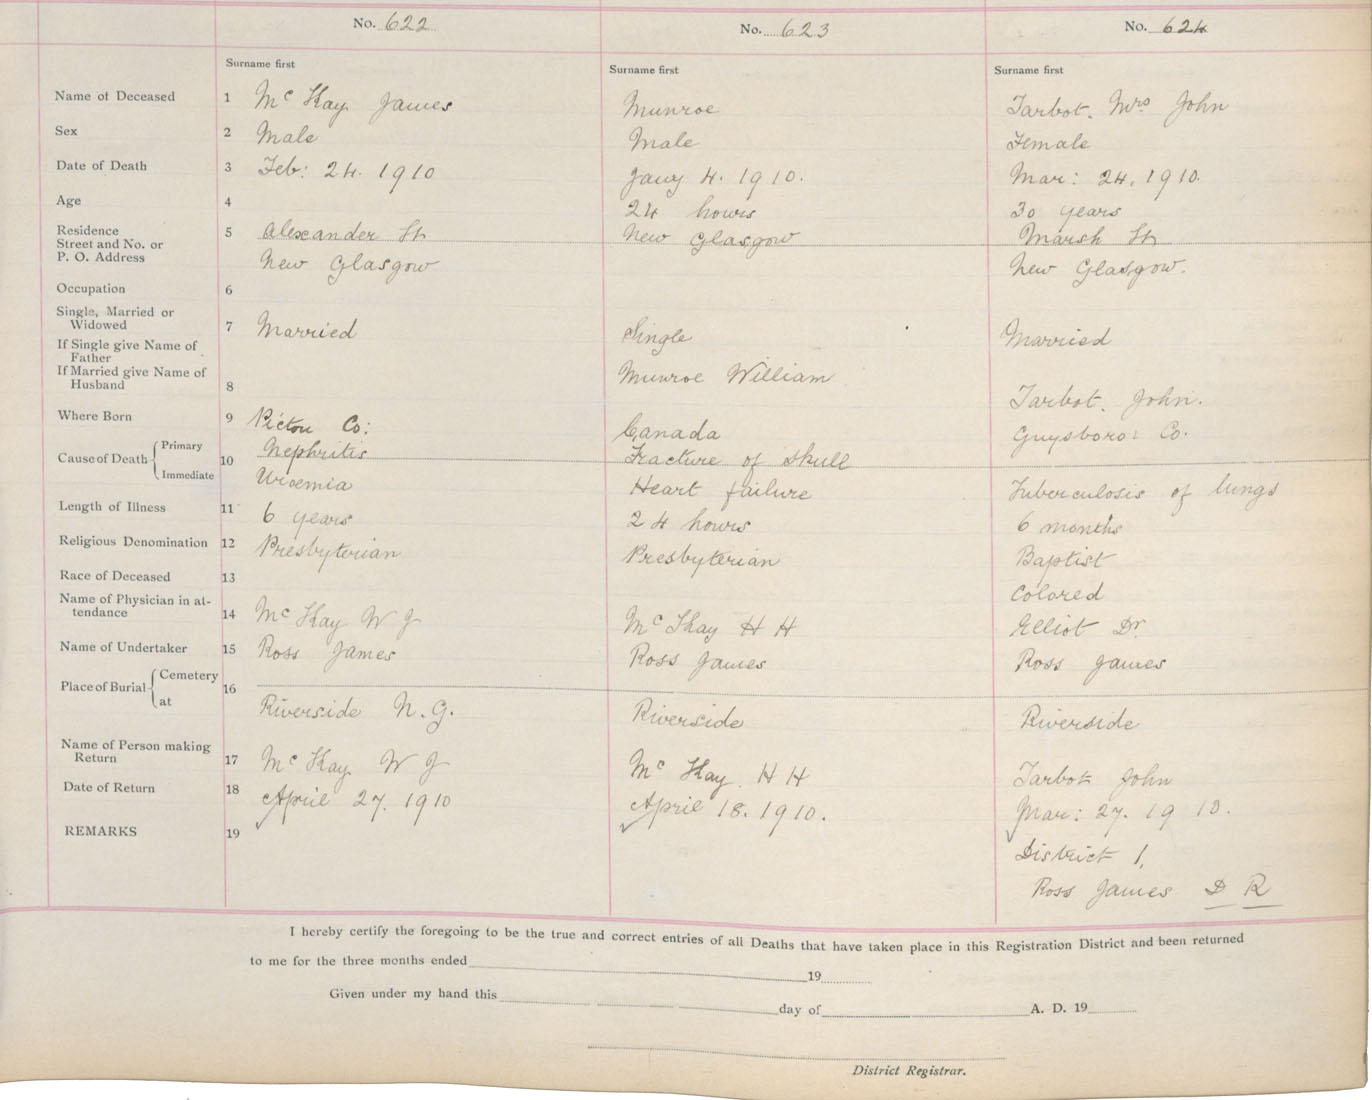 No. 622 No. 623 No. 624
Surname first Surname first Surname first
Name of Deceased 1 McKay James Munroe Tarbot. Mrs John
Sex 2 Male Male Female
Date of Death 3 Feb: 24. 1910 Jany 4. 1910. Mar: 24, 1910.
Age 4 24 hours 30 years
Residence
Street and No. or 5 Alexander St New Glasgow Marsh St
P. O. Address New Glasgow New Glasgow.
Occupation 6
Single, Married or
Widowed 7 Married Single Married
If Single give Name of
Father
If Married give Name of Munroe William
Husband 8 Tarbot. John.
Where Born 9 Pictou Co: Canada Guysboro: Co.
Cause of Death Primary 10 Nephritis Fracture of Skull
Immediate Uroemia Heart failure Tuberculosis of lungs
Length of Illness 11 6 years 24 hours 6 months
Religious Denomination 12 Presbyterian Presbyterian Baptist
Race of Deceased 13 Colored
Name of Physician in at-
tendance 14 McKay W J McKay H H Elliot Dr.
Name of Undertaker 15 Ross James Ross James Ross James
Place of Burial Cemetery 16
at Riverside N. G. Riverside Riverside
Name of Person making
Return 17 McKay W J McKay. H H Tarbot John
Date of Return 18 April 27. 1910 April 18. 1910. Mar: 27. 1910.
REMARKS 19 District 1,
Ross James D R
I hereby certify the foregoing to be the true and correct entries of all Deaths that have taken place in this Registration District and been returned
to me for the three months ended 19
Given under my hand this day of A. D. 19
District Registrar.